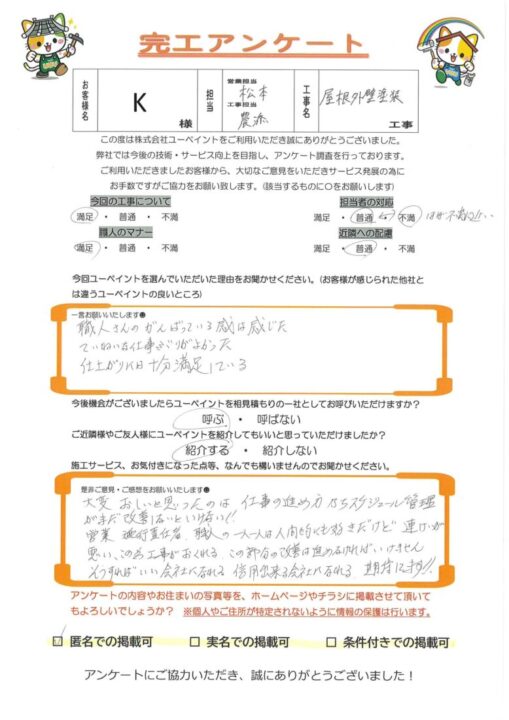 完工アンケート
お客様名
K
様
担当
営業担当
松本
工事担当
農添
工事名
屋根外壁塗装
工事
この度は株式会社ユーペイントをご利用いただき誠にありがとうございました。
弊社では今後の技術・サービス向上を目指し、アンケート調査を行っております。
ご利用いただきましたお客様から、大切なご意見をいただきサービス発展の為に
お手数ですがご協力をお願い致します。(該当するものに○をお願いします)
今回の工事について
満足 ・ 普通 ・ 不満
担当者の対応
満足 ・ 普通 ・ 不満
職人のマナー
満足 ・ 普通 ・ 不満
近隣への配慮
満足 ・ 普通 ・ 不満
今回ユーペイントを選んでいただいた理由をお聞かせください。(お客様が感じられた他社と
は違うユーペイントの良いところ)
一言お願いいたします
職人さんのがんばっている感は感じた
ていねいな仕事ぶりがよかった
仕上がりには十分満足している
今後機会がございましたらユーペイントを相見積もりの一社としてお呼びいただけますか?
呼ぶ ・ 呼ばない
ご近隣様やご友人様にユーペイントを紹介してもいいと思っていただけましたか?
紹介する ・ 紹介しない
施工サービス、お気付きになった点等、なんでも構いませんのでお聞かせください。
是非ご意見・ご感想をお願いいたします
大変おしいと思ったのは 仕事の進め方 スケジュール管理
がまだ改善しないといけない!!
営業 責任者 職人の一人一人は人間的にも好きだけど 連けいが
悪い、この為工事がおくれる この部分の改善は進めなければいけません
そうすればいい会社になれる 信用出来る会社になれる 期待してます!!
アンケートの内容やお住まいの写真等を、ホームページやチラシに掲載させて頂いて
もよろしいでしょうか? ※個人やご住所が特定されないように情報の保護は行います。
☐ 匿名での掲載可 ☐ 実名での掲載可 ☐ 条件付きでの掲載可
アンケートにご協力いただき、誠にありがとうございました!